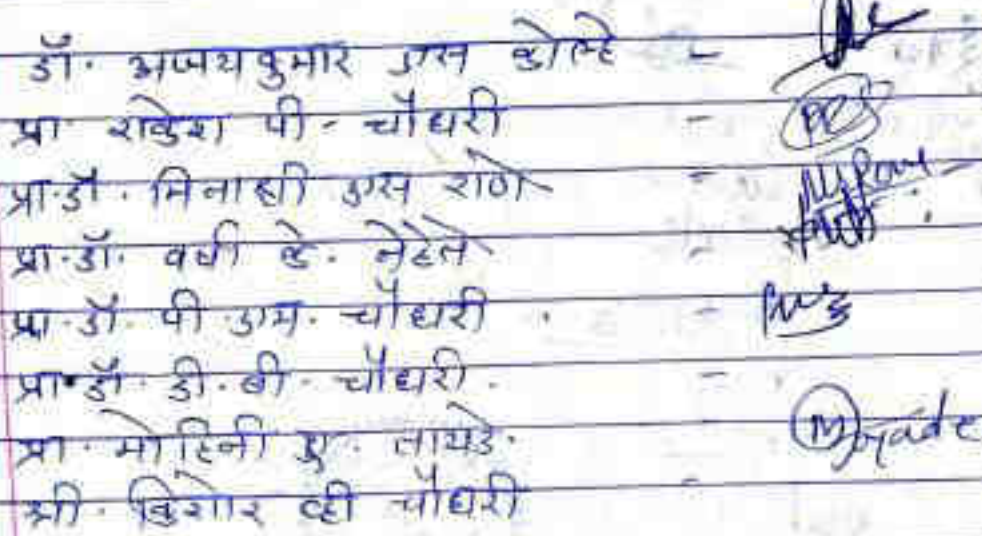 डॉ. अजयकुमार एस कोल्हे -
प्रा राकेश पी - चौधरी -
प्रा.डॉ. मिनाक्षी एस राणे -
प्रा.डॉ. के. नेहेते -
प्रा.डॉ. पी.एम. चौधरी -
प्रा.डॉ. डी.बी. चौधरी. -
प्रा. मोहिनी ए. तायडे.
श्री. किशोर व्ही चौधरी -